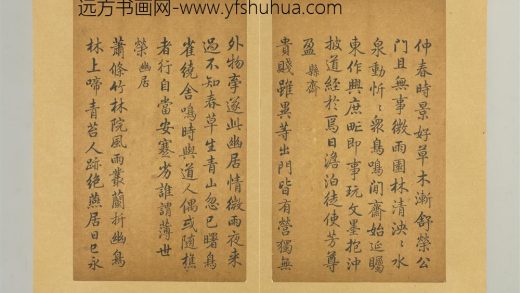 远方书画网- www.yfshuhua.com
仲春時景好草木漸舒榮公
門且無事微雨園林清泱〻水
泉動忻〻衆鳥鳴閒齋始延矚
東作興庶甿即事玩文墨抱沖
披道經於焉日澹泊徒使芳尊
盈 縣齋
貴賤雖異等出門皆有營獨無
外物牽遂此幽居情微雨夜來
過不知春草生青山忽已曙鳥
雀繞舍鳴時與道人偶或隨樵
者行自當安蹇劣誰謂薄世
榮 幽居
蕭條竹林院風雨叢蘭折幽鳥
林上啼青苔人跡絕燕居日已永